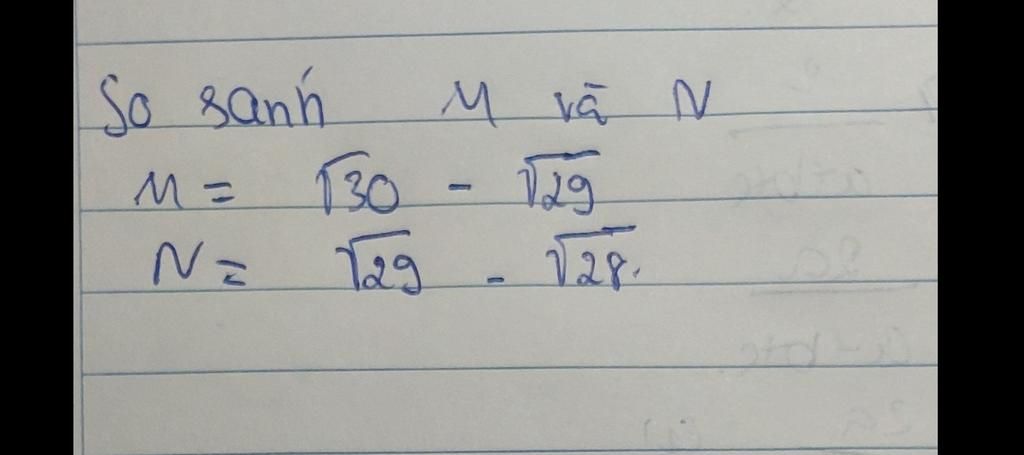 So sánh M và N
M = √30 - √29
N = √29 - √28.